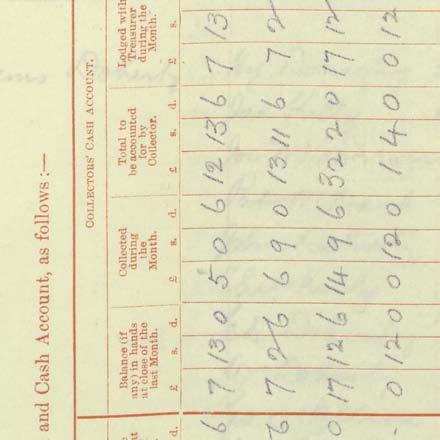 and Cash Account, as follows :—
COLLECTORS' CASH ACCOUNT.
Balance (if any) in hands at close of the last Month.
Collected during the Month.
Total to be accounted for by Collector.
Lodged with Treasurer during the Month.
d. £ s. d. £ s. d. £ s. d. £ s.
6 7 13 0 5 0 6 12 13 6 7 13
6 7 2 6 6 9 0 13 11 6 7 2
0 17 12 6 14 9 6 32 2 0 17 12
- 0 12 0 0 12 0 1 4 0 0 12